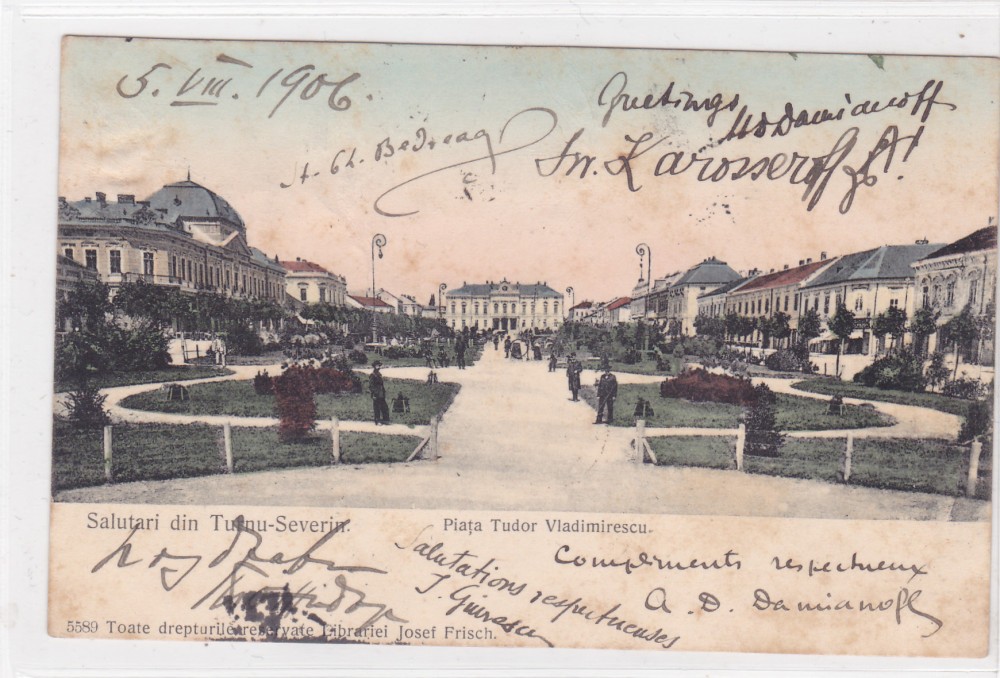 5. VIII. 1906.
Greetings
Damianoff
St. Ch. Bedreag
Sw. Karosseroff
Salutari din Turnu-Severin.
Piața Tudor Vladimirescu.
Salutations respectueuses
Compliments respectueux
A. D. Damianoff
5589 Toate drepturile rezervate Librariei Josef Frisch.